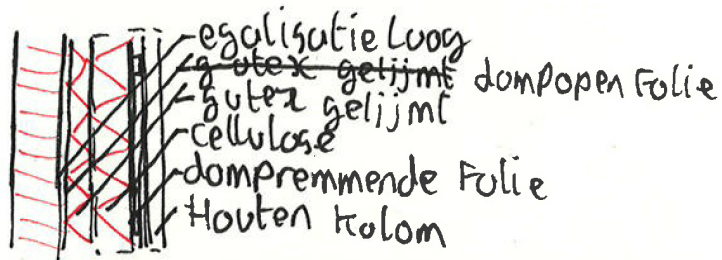 egalisatie laag
gutex gelijmt dampopen Folie
gutex gelijmt
cellulose
dampremmende Folie
Houten Kolom